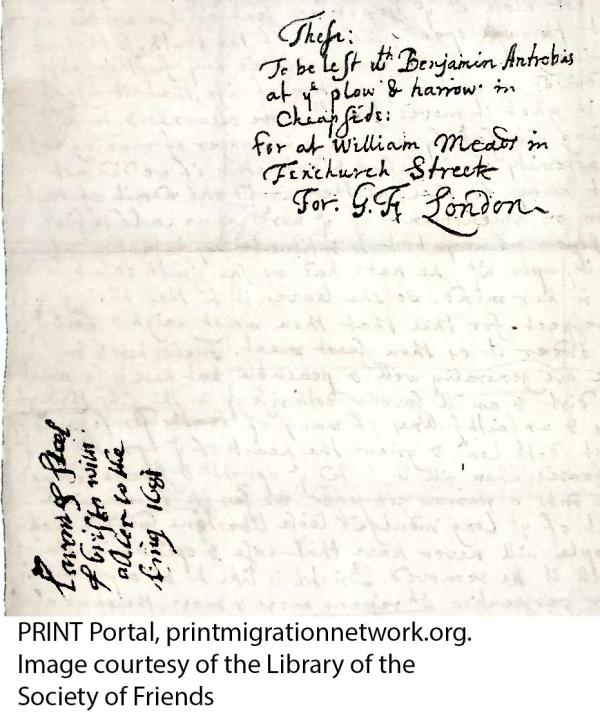 These:
To be Left wth Benjamin Antrobus
at ye plow & harrow in
Cheapside:
for at William Meads in
Fenchurch Street
For: G.ff London
of bristo with
adres to the
king 1681
PRINT Portal, printmigrationnetwork.org.
Image courtesy of the Library of the
Society of Friends